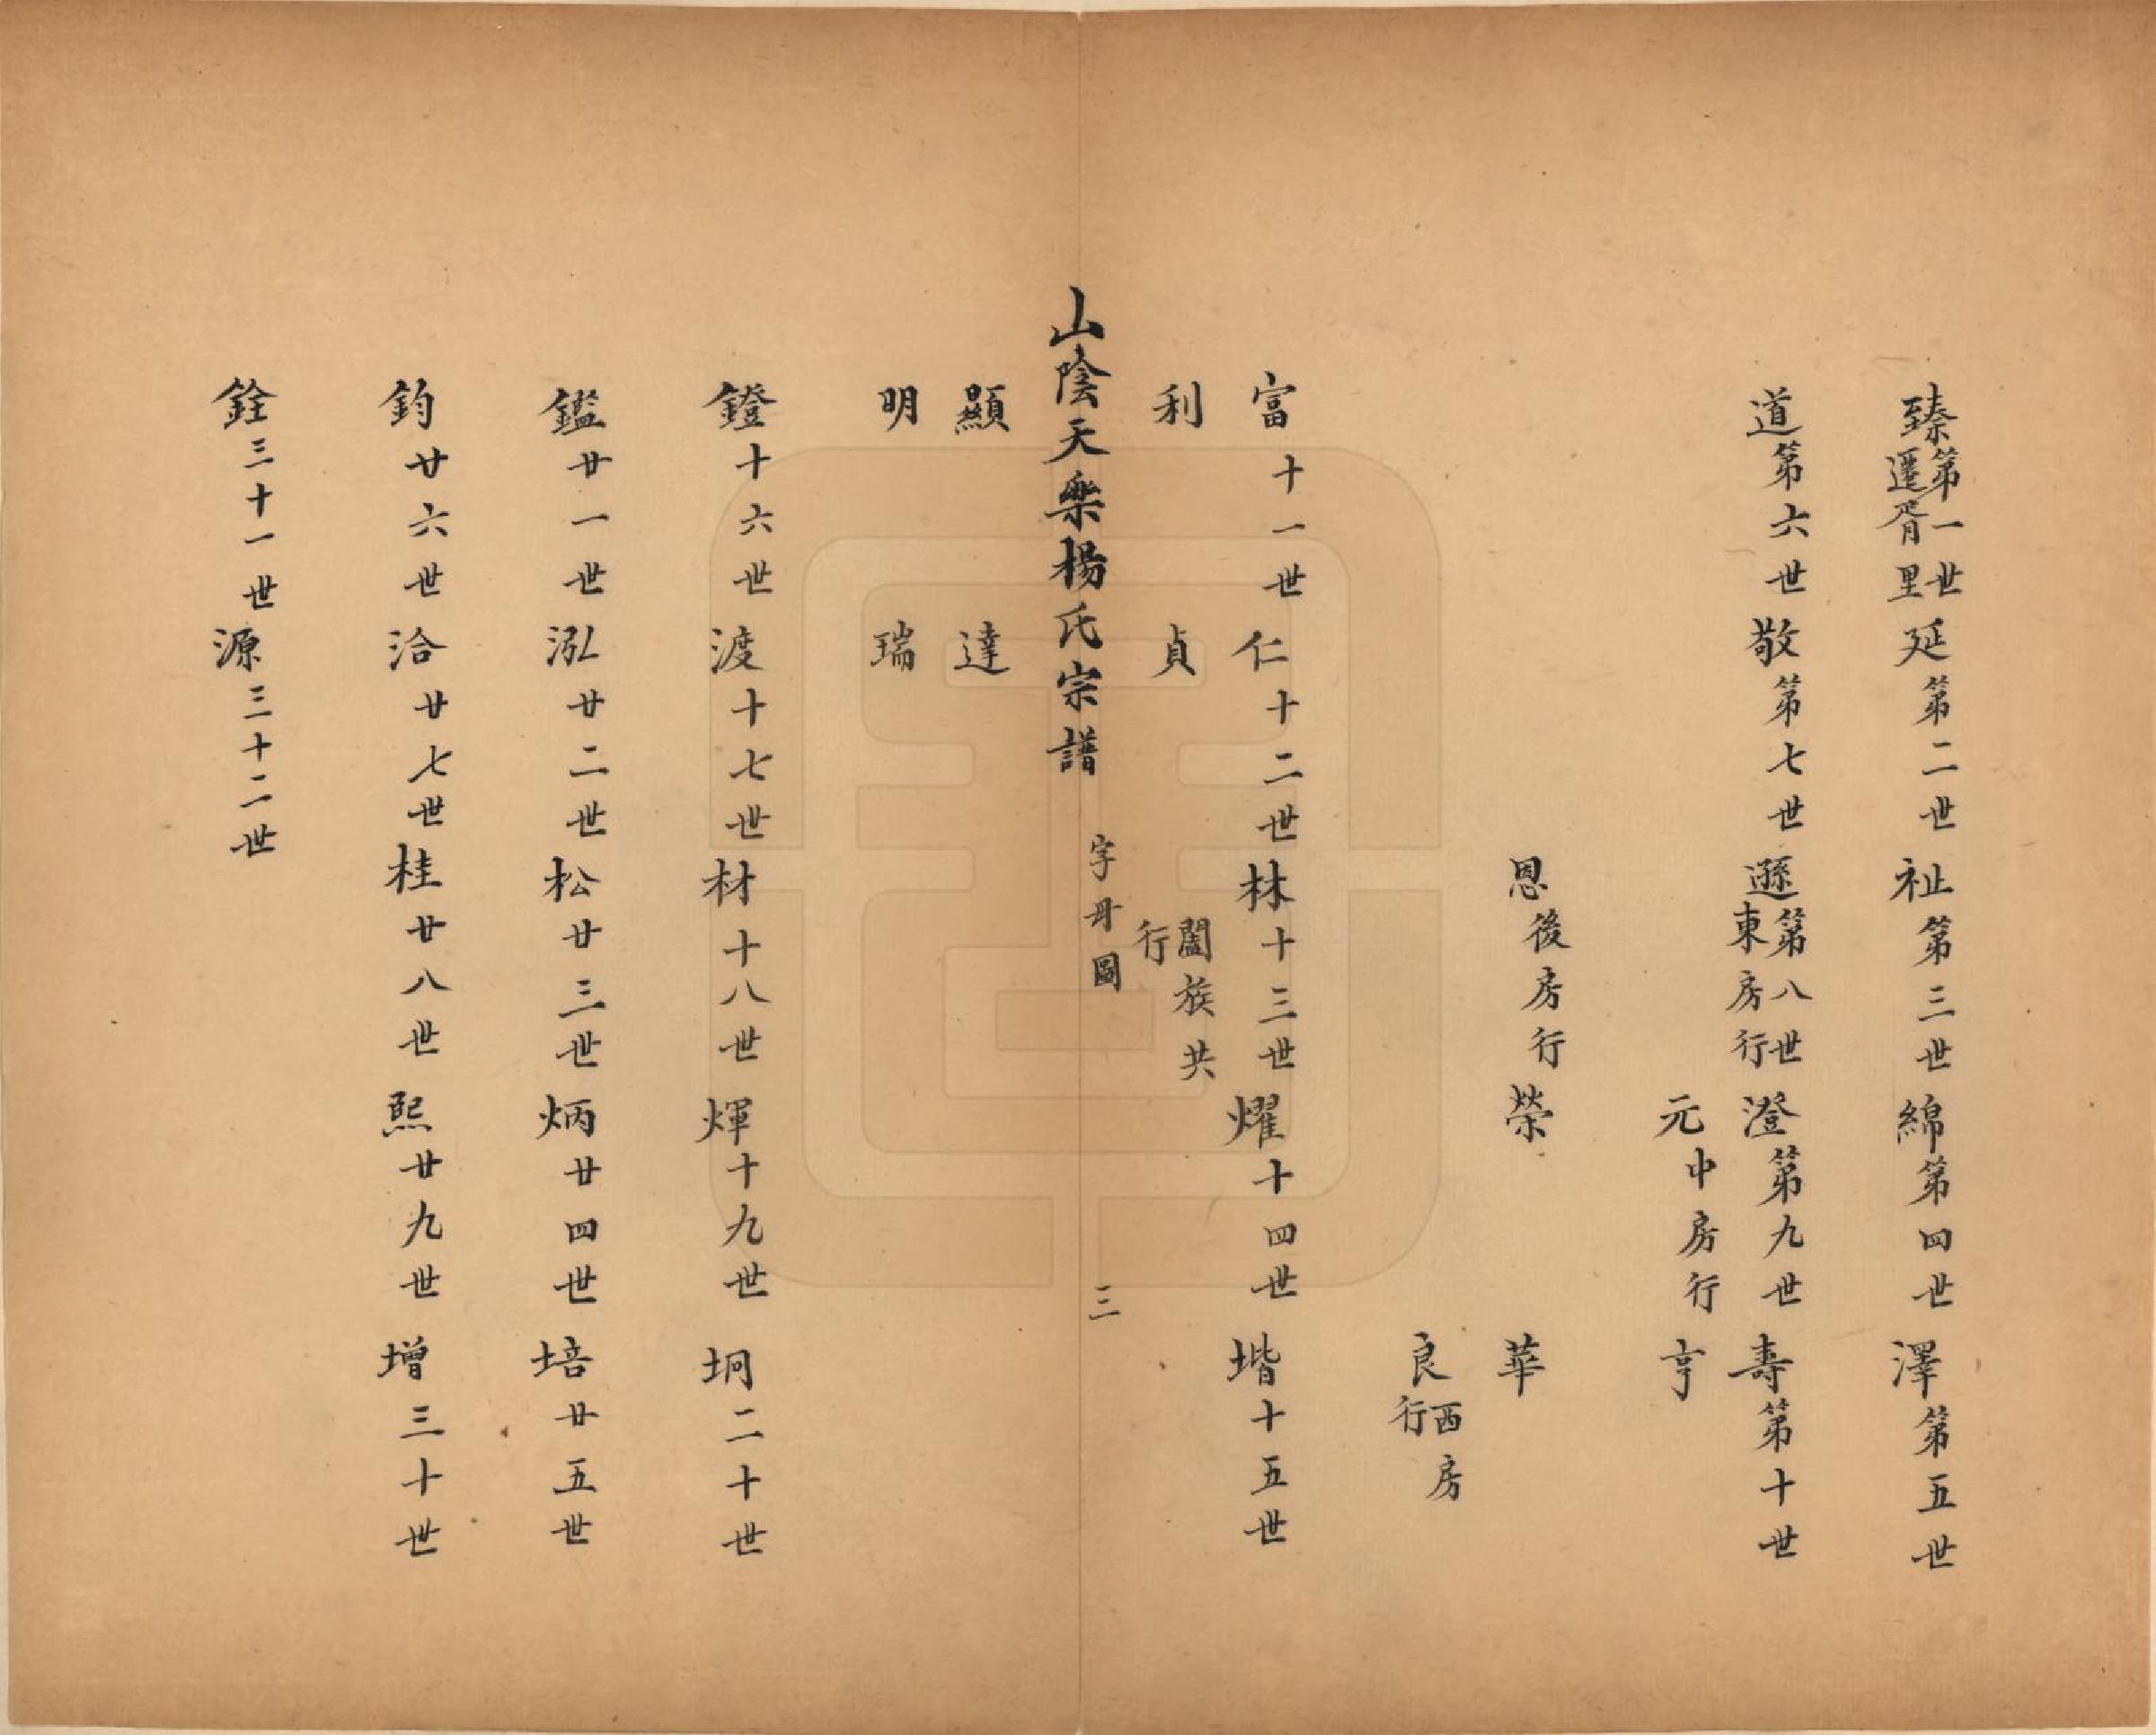 臻第一世遷胥里 延第二世 祉第三世 綿第四世 澤第五世
道第六世 敬第七世 遜第八世東房行 澄第九世 壽第十世
元中房行 亨
恩後房行 榮 華
良西房行
富十一世 仁十二世 林十三世 燿十四世 堦十五世
利 貞 闔族共行
山陰天樂楊氏宗譜 字母圖 三
顯 達
明 瑞
鐙十六世 渡十七世 材十八世 煇十九世 坰二十世
鑑廿一世 泓廿二世 松廿三世 炳廿四世 培廿五世
鈞廿六世 洽廿七世 桂廿八世 熙廿九世 增三十世
銓三十一世 源三十二世